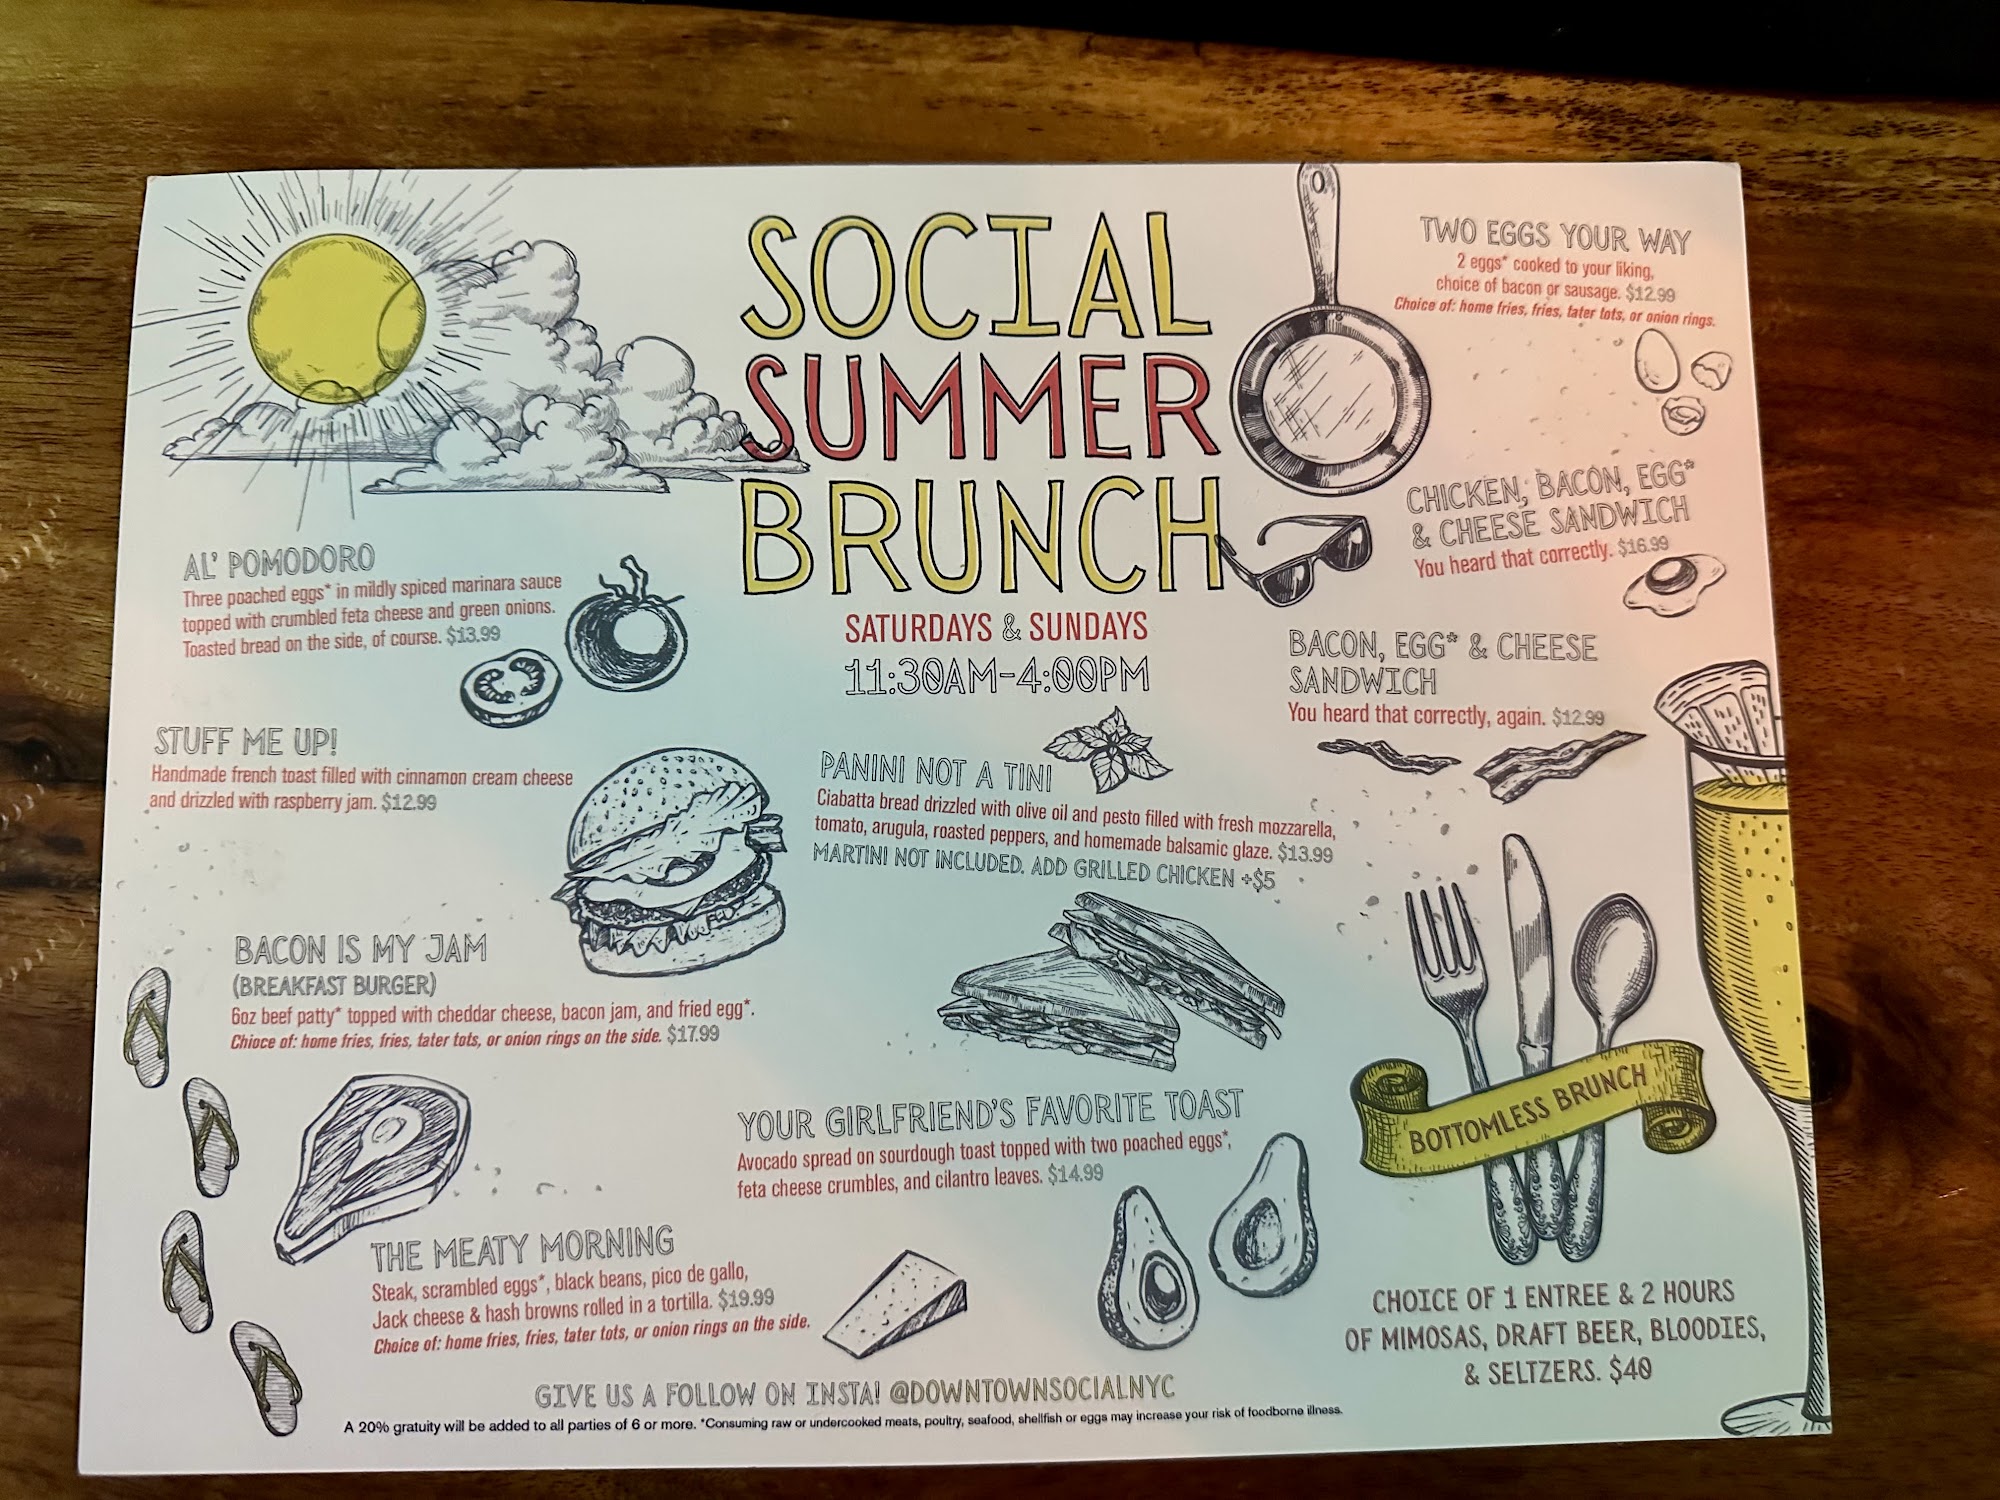 SOCIAL
SUMMER
BRUNCH
SATURDAYS & SUNDAYS
11:30AM-4:00PM
AL' POMODORO
Three poached eggs* in mildly spiced marinara sauce
topped with crumbled feta cheese and green onions.
Toasted bread on the side, of course. $13.99
STUFF ME UP!
Handmade french toast filled with cinnamon cream cheese
and drizzled with raspberry jam. $12.99
BACON IS MY JAM
(BREAKFAST BURGER)
6oz beef patty* topped with cheddar cheese, bacon jam, and fried egg*.
Chioce of: home fries, fries, tater tots, or onion rings on the side. $17.99
THE MEATY MORNING
Steak, scrambled eggs*, black beans, pico de gallo,
Jack cheese & hash browns rolled in a tortilla. $19.99
Choice of: home fries, fries, tater tots, or onion rings on the side.
PANINI NOT A TINI
Ciabatta bread drizzled with olive oil and pesto filled with fresh mozzarella,
tomato, arugula, roasted peppers, and homemade balsamic glaze. $13.99
MARTINI NOT INCLUDED. ADD GRILLED CHICKEN +$5
YOUR GIRLFRIEND'S FAVORITE TOAST
Avocado spread on sourdough toast topped with two poached eggs*,
feta cheese crumbles, and cilantro leaves. $14.99
TWO EGGS YOUR WAY
2 eggs* cooked to your liking,
choice of bacon or sausage. $12.99
Choice of: home fries, fries, tater tots, or onion rings.
CHICKEN, BACON, EGG*
& CHEESE SANDWICH
You heard that correctly. $16.99
BACON, EGG* & CHEESE
SANDWICH
You heard that correctly, again. $12.99
BOTTOMLESS BRUNCH
CHOICE OF 1 ENTREE & 2 HOURS
OF MIMOSAS, DRAFT BEER, BLOODIES,
& SELTZERS. $40
GIVE US A FOLLOW ON INSTA! @DOWNTOWNSOCIALNYC
A 20% gratuity will be added to all parties of 6 or more. *Consuming raw or undercooked meats, poultry, seafood, shellfish or eggs may increase your risk of foodborne illness.